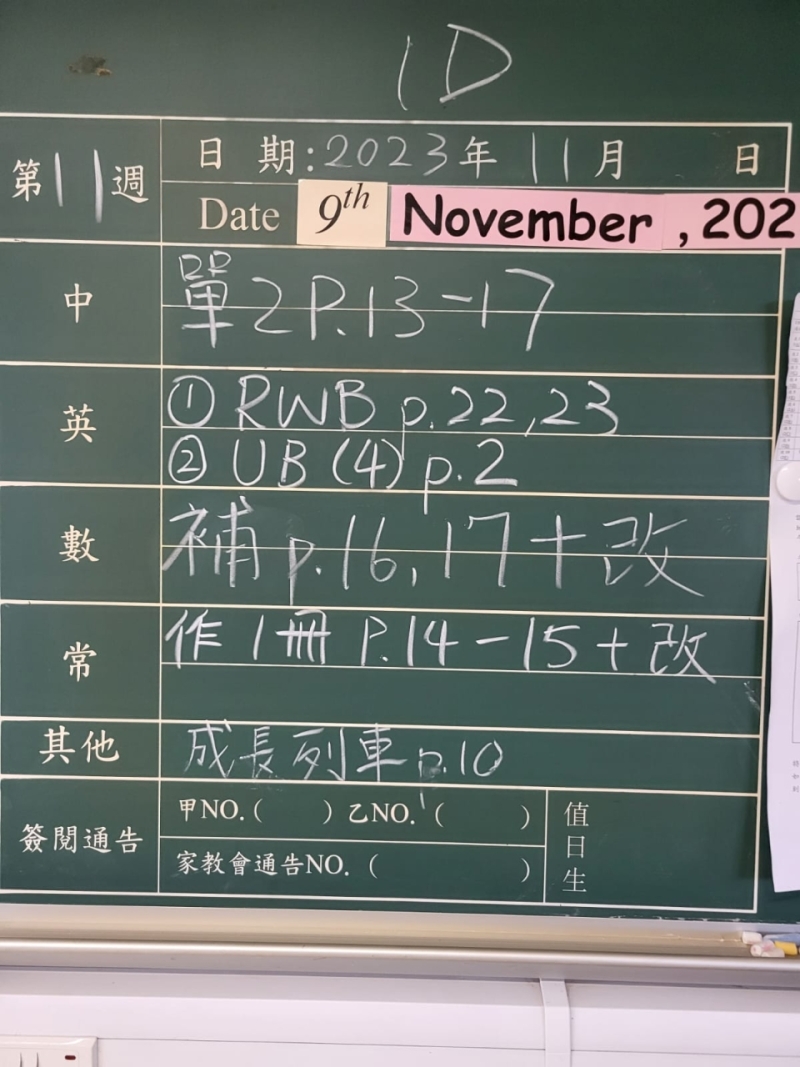 1D
第11週
日 期:2023年 11月 日
Date 9th November , 202
中
單2P.13-17
英
① RWB p.22,23
② UB (4) p.2
數
補 p.16,17+改
常
作1冊 P.14-15+改
其他
成長列車p.10
簽閱通告
甲NO.( ) 乙NO.( )
家教會通告NO. ( )
值日生